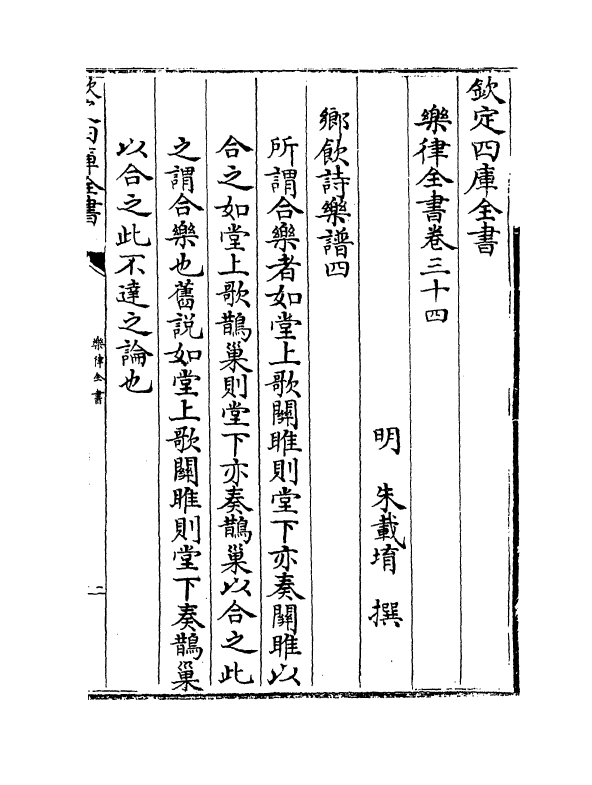 欽定四庫全書
樂律全書卷三十四
明 朱載堉 撰
鄉飲詩樂譜四
所謂合樂者如堂上歌關雎則堂下亦奏關雎以
合之如堂上歌鵲巢則堂下亦奏鵲巢以合之此
之謂合樂也舊説如堂上歌關雎則堂下奏鵲巢
以合之此不達之論也
欽定四庫全書
樂律全書
一